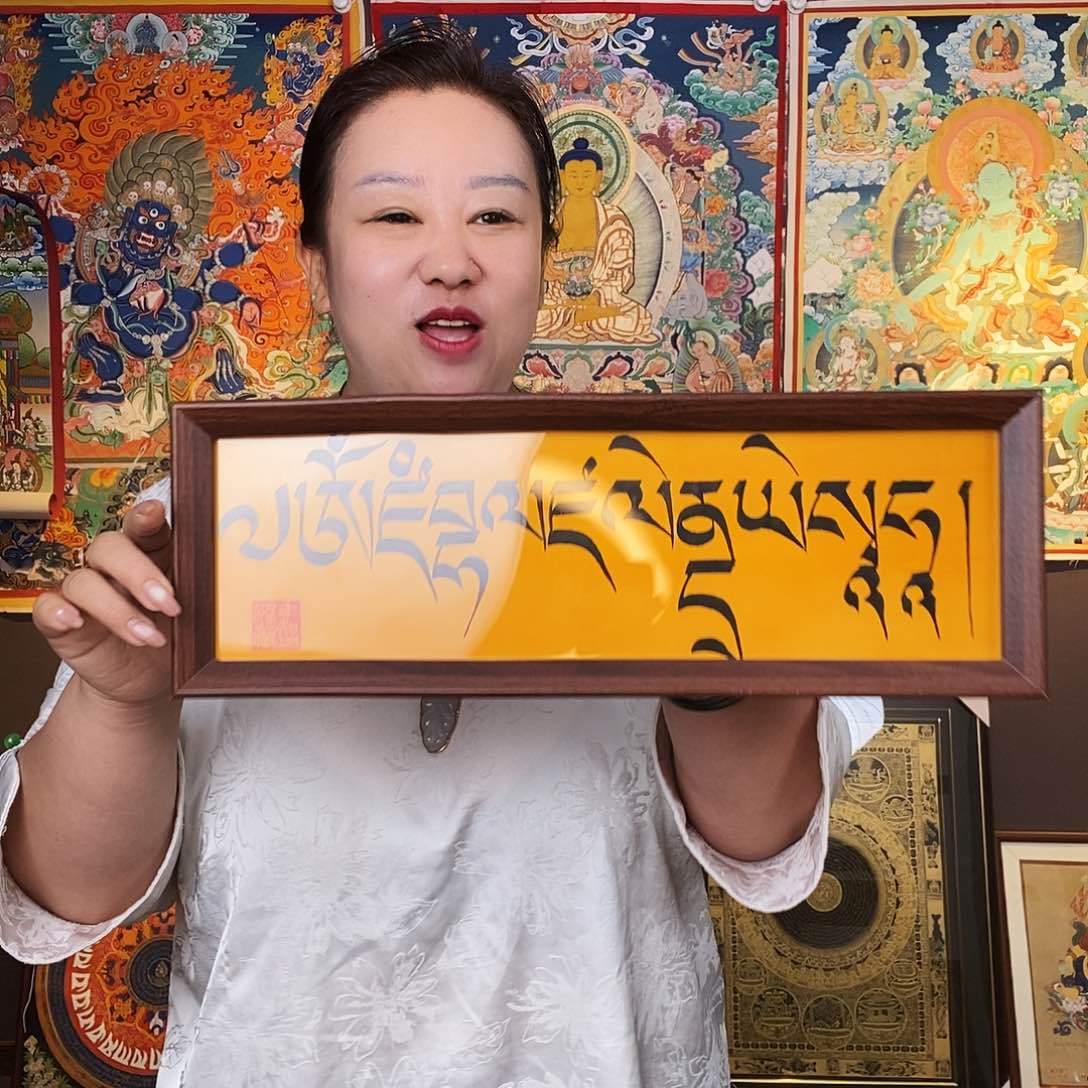 ཨོཾཛཾབྷལཛལེནྡྲཡེསྭཱཧཱ།